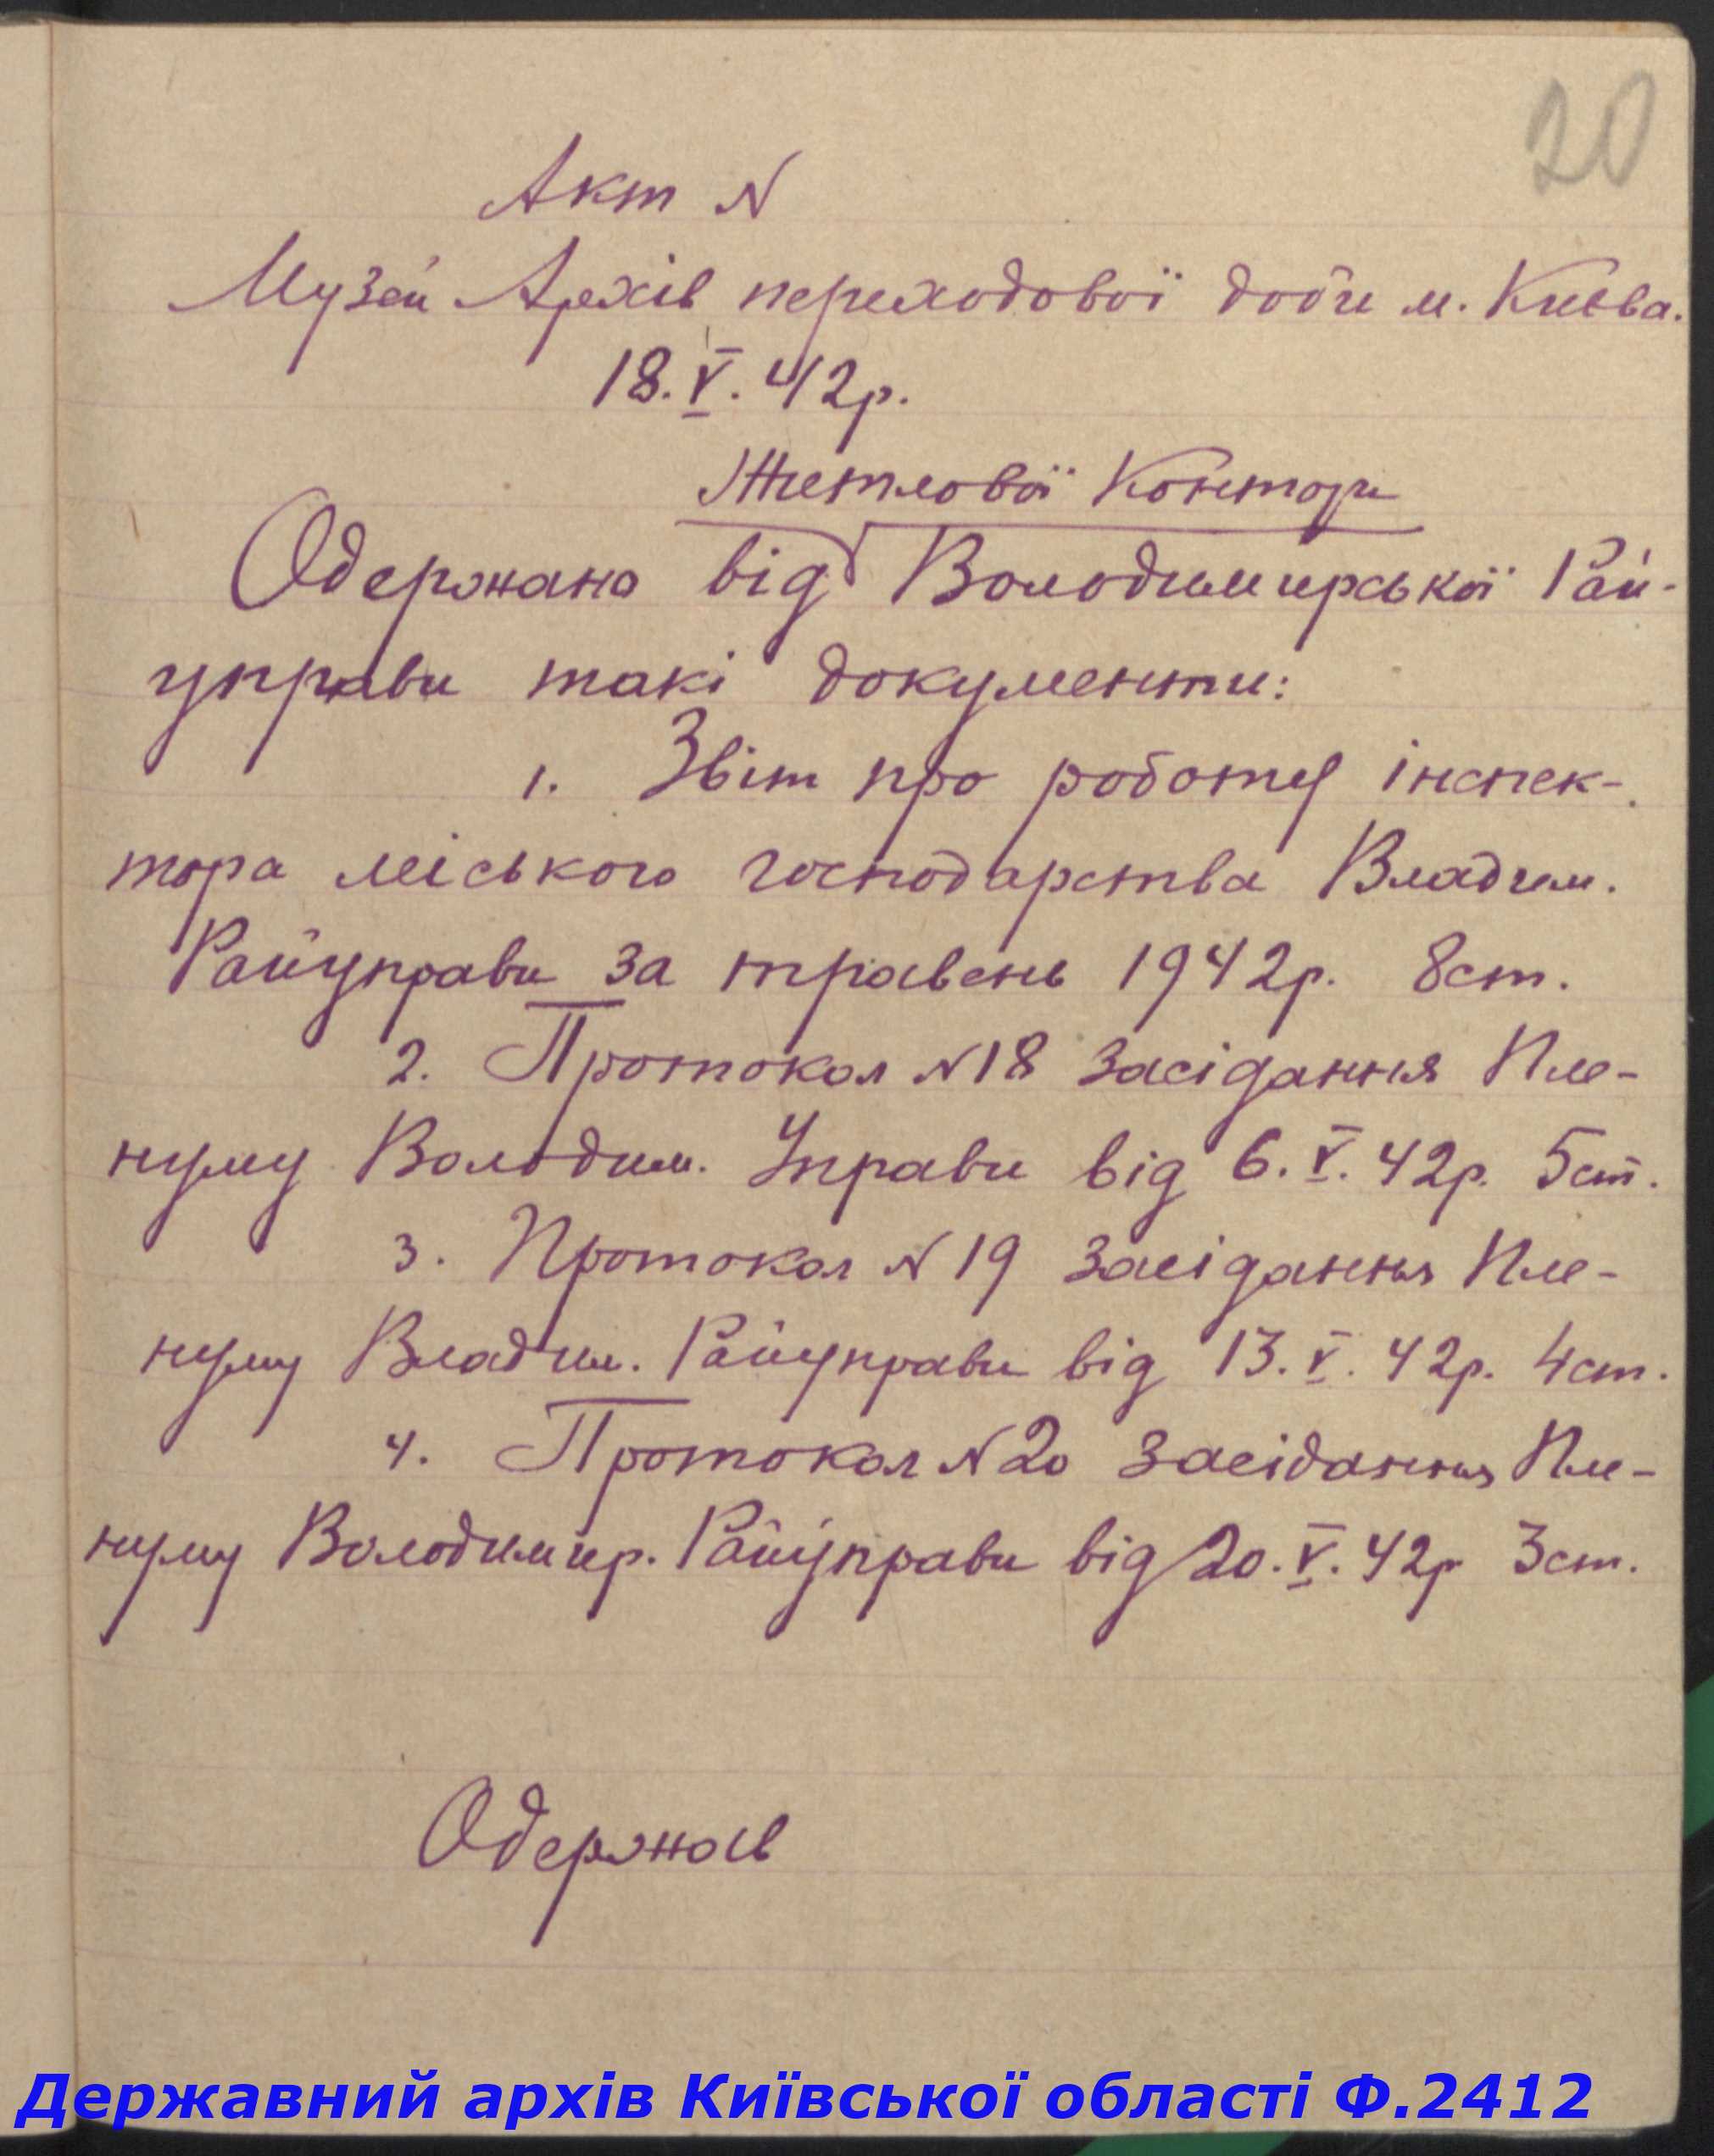 20
Акт N
Музей Архів переходової доби м. Києва.
18.V.42р.
Житлової Контори
Одержано від Володимирської Рай-
управи такі документи:
1. Звіт про роботу інспек-
тора міського господарства Владим.
Райуправи за травень 1942р. 8ст.
2. Протокол N18 засідання Пле-
нуму Володим. Управи від 6.V.42р. 5ст.
3. Протокол N19 засідання Пле-
нуму Владим. Райуправи від 13.V.42р. 4ст.
4. Протокол N20 засідання Пле-
нуму Володимир. Райуправи від 20.V.42р 3ст.
Одержав
Державний архів Київської області Ф.2412